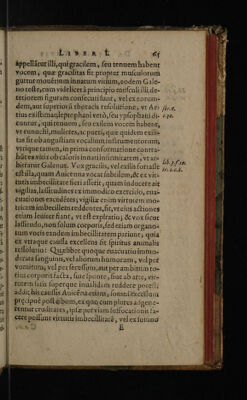 LIBER I. 65
appellarut illi, qui gracilem, seu tenuem habent
vocem, quæ gracilitas fit propter musculorum
guttur mouentium innatum vitium, eodem Gale-
no teste, cum videlicet à principio musculi illi de-
teriorem figuram consecuti sunt, vel ex eorum-
dem, aut superioris thoracis resolutione, vt Aë-
tius existimat,
cantur, qui tenuem, seu exilem vocem habent,
vt eunuchi, mulieres, ac pueri, quæ quidem exili-
tas fit ob angustiam vocalium instrumentorum,
vtrique tamen, in prima conformatione contra-
hitur, vitio caloris innati infirmitatem, vt ar-
bitratur Galenus. Vox gracilis, vel exilis
est illa, quam Auicenna vocat subtilem, & ex vir-
tutis imbecillitate fieri asserit, quam inducere ait
vigilias, lassitudines ex immodico exercitio, eua-
cuationes excedentes; vigiliæ enim virtutem mo-
tricem imbecillem reddentes,
enim
lassitudo, non solum corporis, sed etiam organo-
rum vocis eandem imbecillitatem pariunt, quia
ex vtraque causa excellens fit spiritus animalis
resolutio: Quælibet quoque euacuatio immo-
derata sanguinis, vel aliorum humorum, vel per
vomitum, vel per secessum, aut per ambitum to-
tius corporis facta, siue sponte, siue ab arte, vir-
tutem satis superque inualidam reddere potest:
addit his causis Auicenna etiam, somnum
præcipuè post cibum, ex quo cum plures adgene-
rentur cruditates, ipsæ per viam suffocationis fa-
cere possunt virtutis imbecillitatē, vel ex somno
E